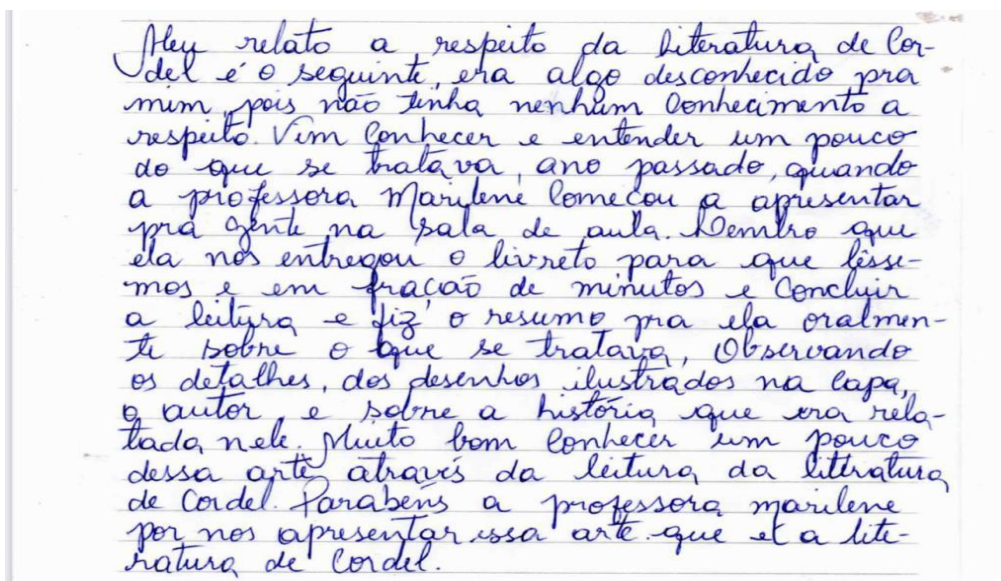 Meu relato a respeito da literatura de Cor-
del é o seguinte, era algo desconhecido pra
mim, pois não tinha nenhum Conhecimento a
respeito. Vim Conhecer e entender um pouco
do que se tratava, ano passado, quando
a professora Marilene Começou a apresentar
pra gente na sala de aula. Lembro que
ela nos entregou o livreto para que lêsse-
mos e em fração de minutos e Concluir
a leitura e fiz o resumo pra ela oralmen-
te sobre o que se tratava, Observando
os detalhes, dos desenhos ilustrados na Capa,
o autor, e sobre a história que era rela-
tada nele. Muito bom Conhecer um pouco
dessa arte através da leitura da literatura
de Cordel. Parabéns a professora marilene
por nos apresentar essa arte que et a lite-
ratura de Cordel.